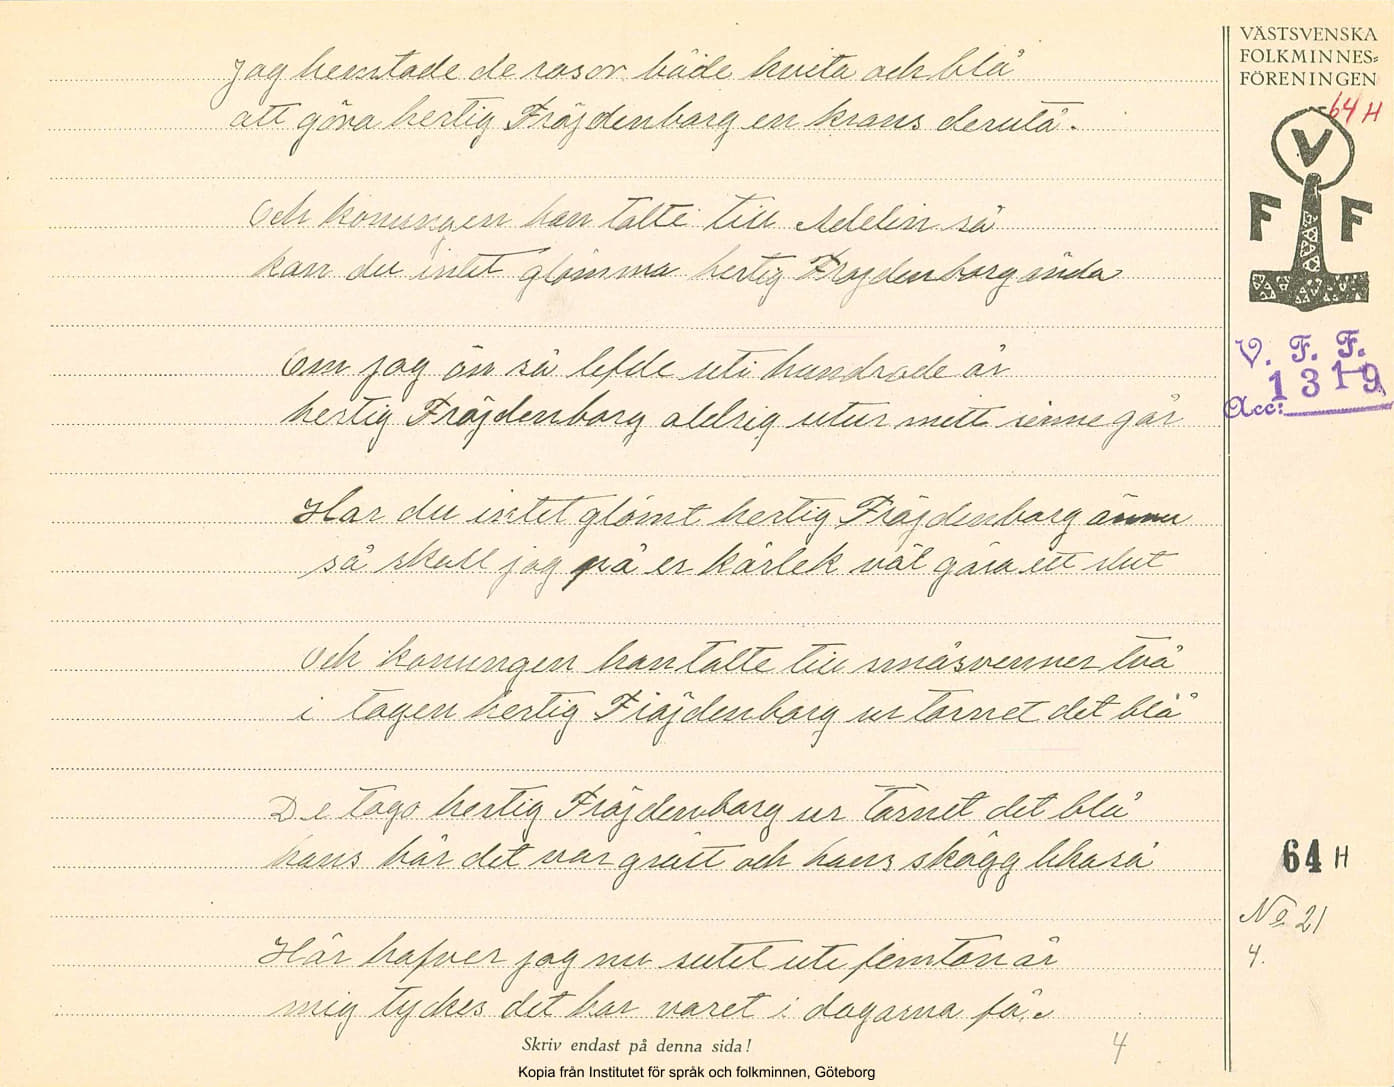 Jag hemtade de rosor både hvita och blå
att göra hertig Fröjdenborg en krans derutå.
Och konungen han talte till Adelin så
kan du intet glömma hertig Fröjdenborg ända
Om jag än så lefde uti hundrade år
hertig Fröjdenborg aldrig utur mitt sinne går
Har du intet glömt hertig Fröjdenborg ännu
så skall jag på er kärlek väl göra ett slut
Och konungen han talte till småsvenner två
i tagen hertig Fröjdenborg ur tornet det blå
De togo hertig Fröjdenborg ur tornet det blå
hans hår det var grått och hans skägg lika så
Här hafver jag nu sutet uti femton år
mig tyckes det har varet i dagarna få.
Skriv endast på denna sida!
4
Kopia från Institutet för språk och folkminnen, Göteborg
VÄSTSVENSKA
FOLKMINNES-
FÖRENINGEN
64 H
V
F F
V. F. F.
1319
Acc:
64 H
No 21
4.